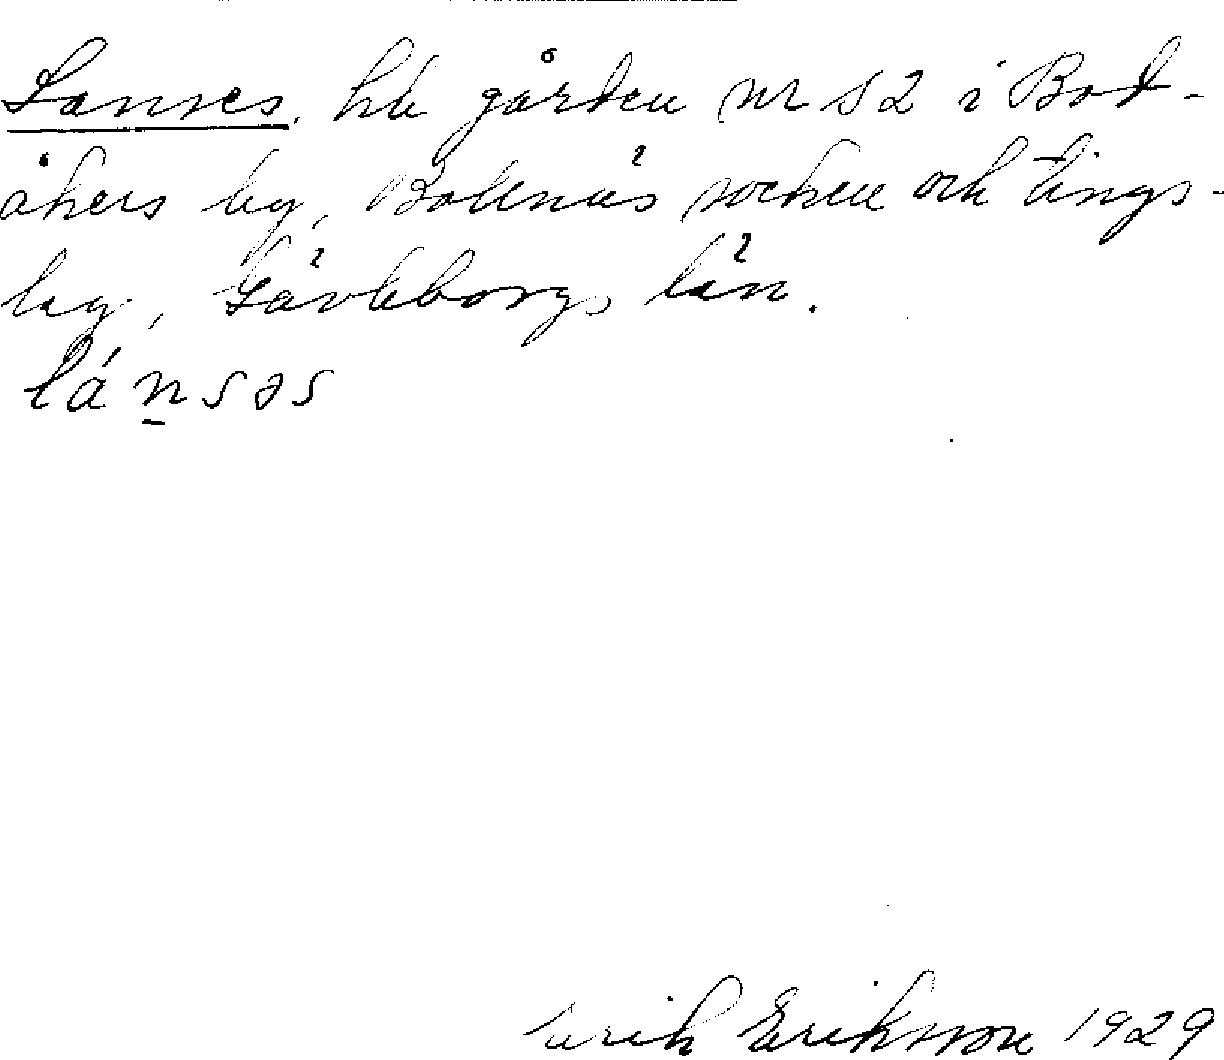 Lanses. gården nr i Bod-
åkers by, Bollnäs socken och tings-
lag, Gävleborgs län.
lán̲səs
Erik Eriksson 1929